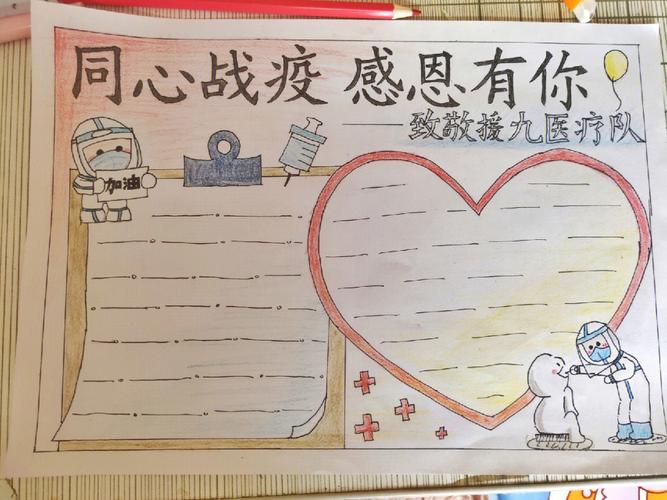 同心战疫 感恩有你
——致敬援九医疗队
加油